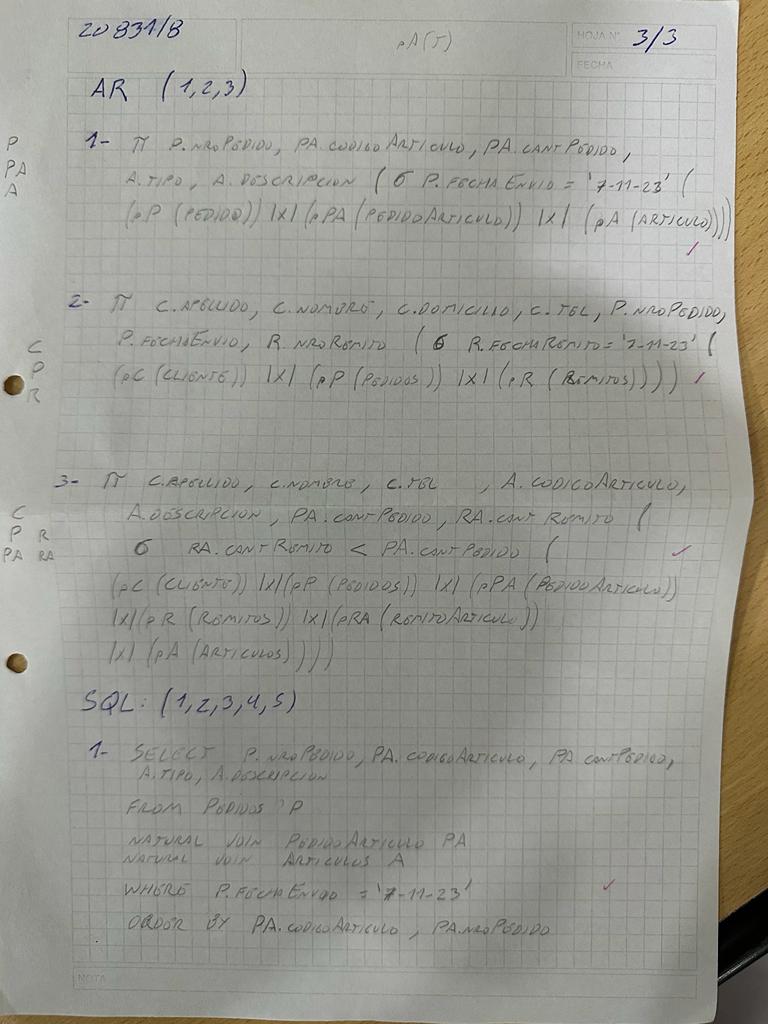 20831/8
ρA(T)
HOJA N° 3/3
FECHA
AR (1,2,3)
P
PA
A
1- π P.NROPEDIDO, PA.CODIGOARTICULO, PA.CANTPEDIDO,
A.TIPO, A.DESCRIPCION (σ P.FECHAENVIO = '7-11-23' (
(ρP (PEDIDO)) |X| (ρPA (PEDIDOARTICULO)) |X| (ρA (ARTICULO))))
2- π C.APELLIDO, C.NOMBRE, C.DOMICILIO, C.TEL, P.NROPEDIDO,
P.FECHAENVIO, R.NROREMITO (σ R.FECHAREMITO = '7-11-23' (
(ρC (CLIENTE)) |X| (ρP (PEDIDOS)) |X| (ρR (REMITOS))))
C
P
R
3- π C.APELLIDO, C.NOMBRE, C.TEL , A.CODIGOARTICULO,
A.DESCRIPCION, PA.CANTPEDIDO, RA.CANTREMITO (
σ RA.CANTREMITO < PA.CANTPEDIDO (
(ρC (CLIENTE)) |X| (ρP (PEDIDOS)) |X| (ρPA (PEDIDOARTICULO))
|X| (ρR (REMITOS)) |X| (ρRA (REMITOARTICULO))
|X| (ρA (ARTICULOS))))
C
P R
PA RA
SQL: (1,2,3,4,5)
1- SELECT P.NROPEDIDO, PA.CODIGOARTICULO, PA.CANTPEDIDO,
A.TIPO, A.DESCRIPCION
FROM PEDIDOS P
NATURAL JOIN PEDIDOARTICULO PA
NATURAL JOIN ARTICULOS A
WHERE P.FECHAENVIO = '7-11-23'
ORDER BY PA.CODIGOARTICULO, PA.NROPEDIDO
NOTA